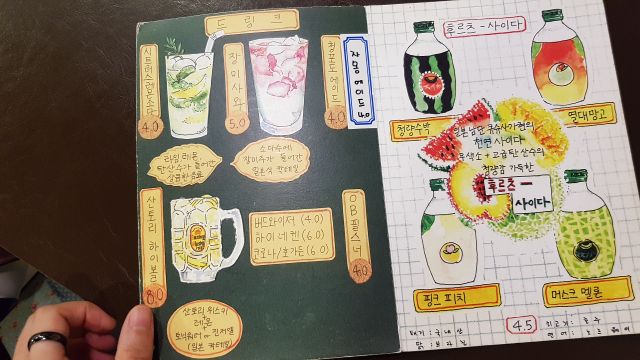 드링크
시트러스멀쵸단
4.0
장미사와
5.0
청포도에이드
4.0
자몽에이드 4.0
라임 레몬
탄산수가 들어간
상큼한 음료
소다수에
장미주가 들어간
일본식 칵테일
산토리 하이볼
8.0
버드와이저 (4.0)
하이네켄 (6.0)
코로나/호가든 (6.0)
OB필스너
4.0
산토리 위스키
+
레몬
+
토닉워터 or 진저엘
(일본 칵테일)
후르츠-사이다
청량수박
열대망고
일본남단 큐슈사가현의
천연 사이다
색소 + 고급탄산수의
청량감 가득한
후르츠-
사이다
핑크 피치
머스크 멜론
4.5